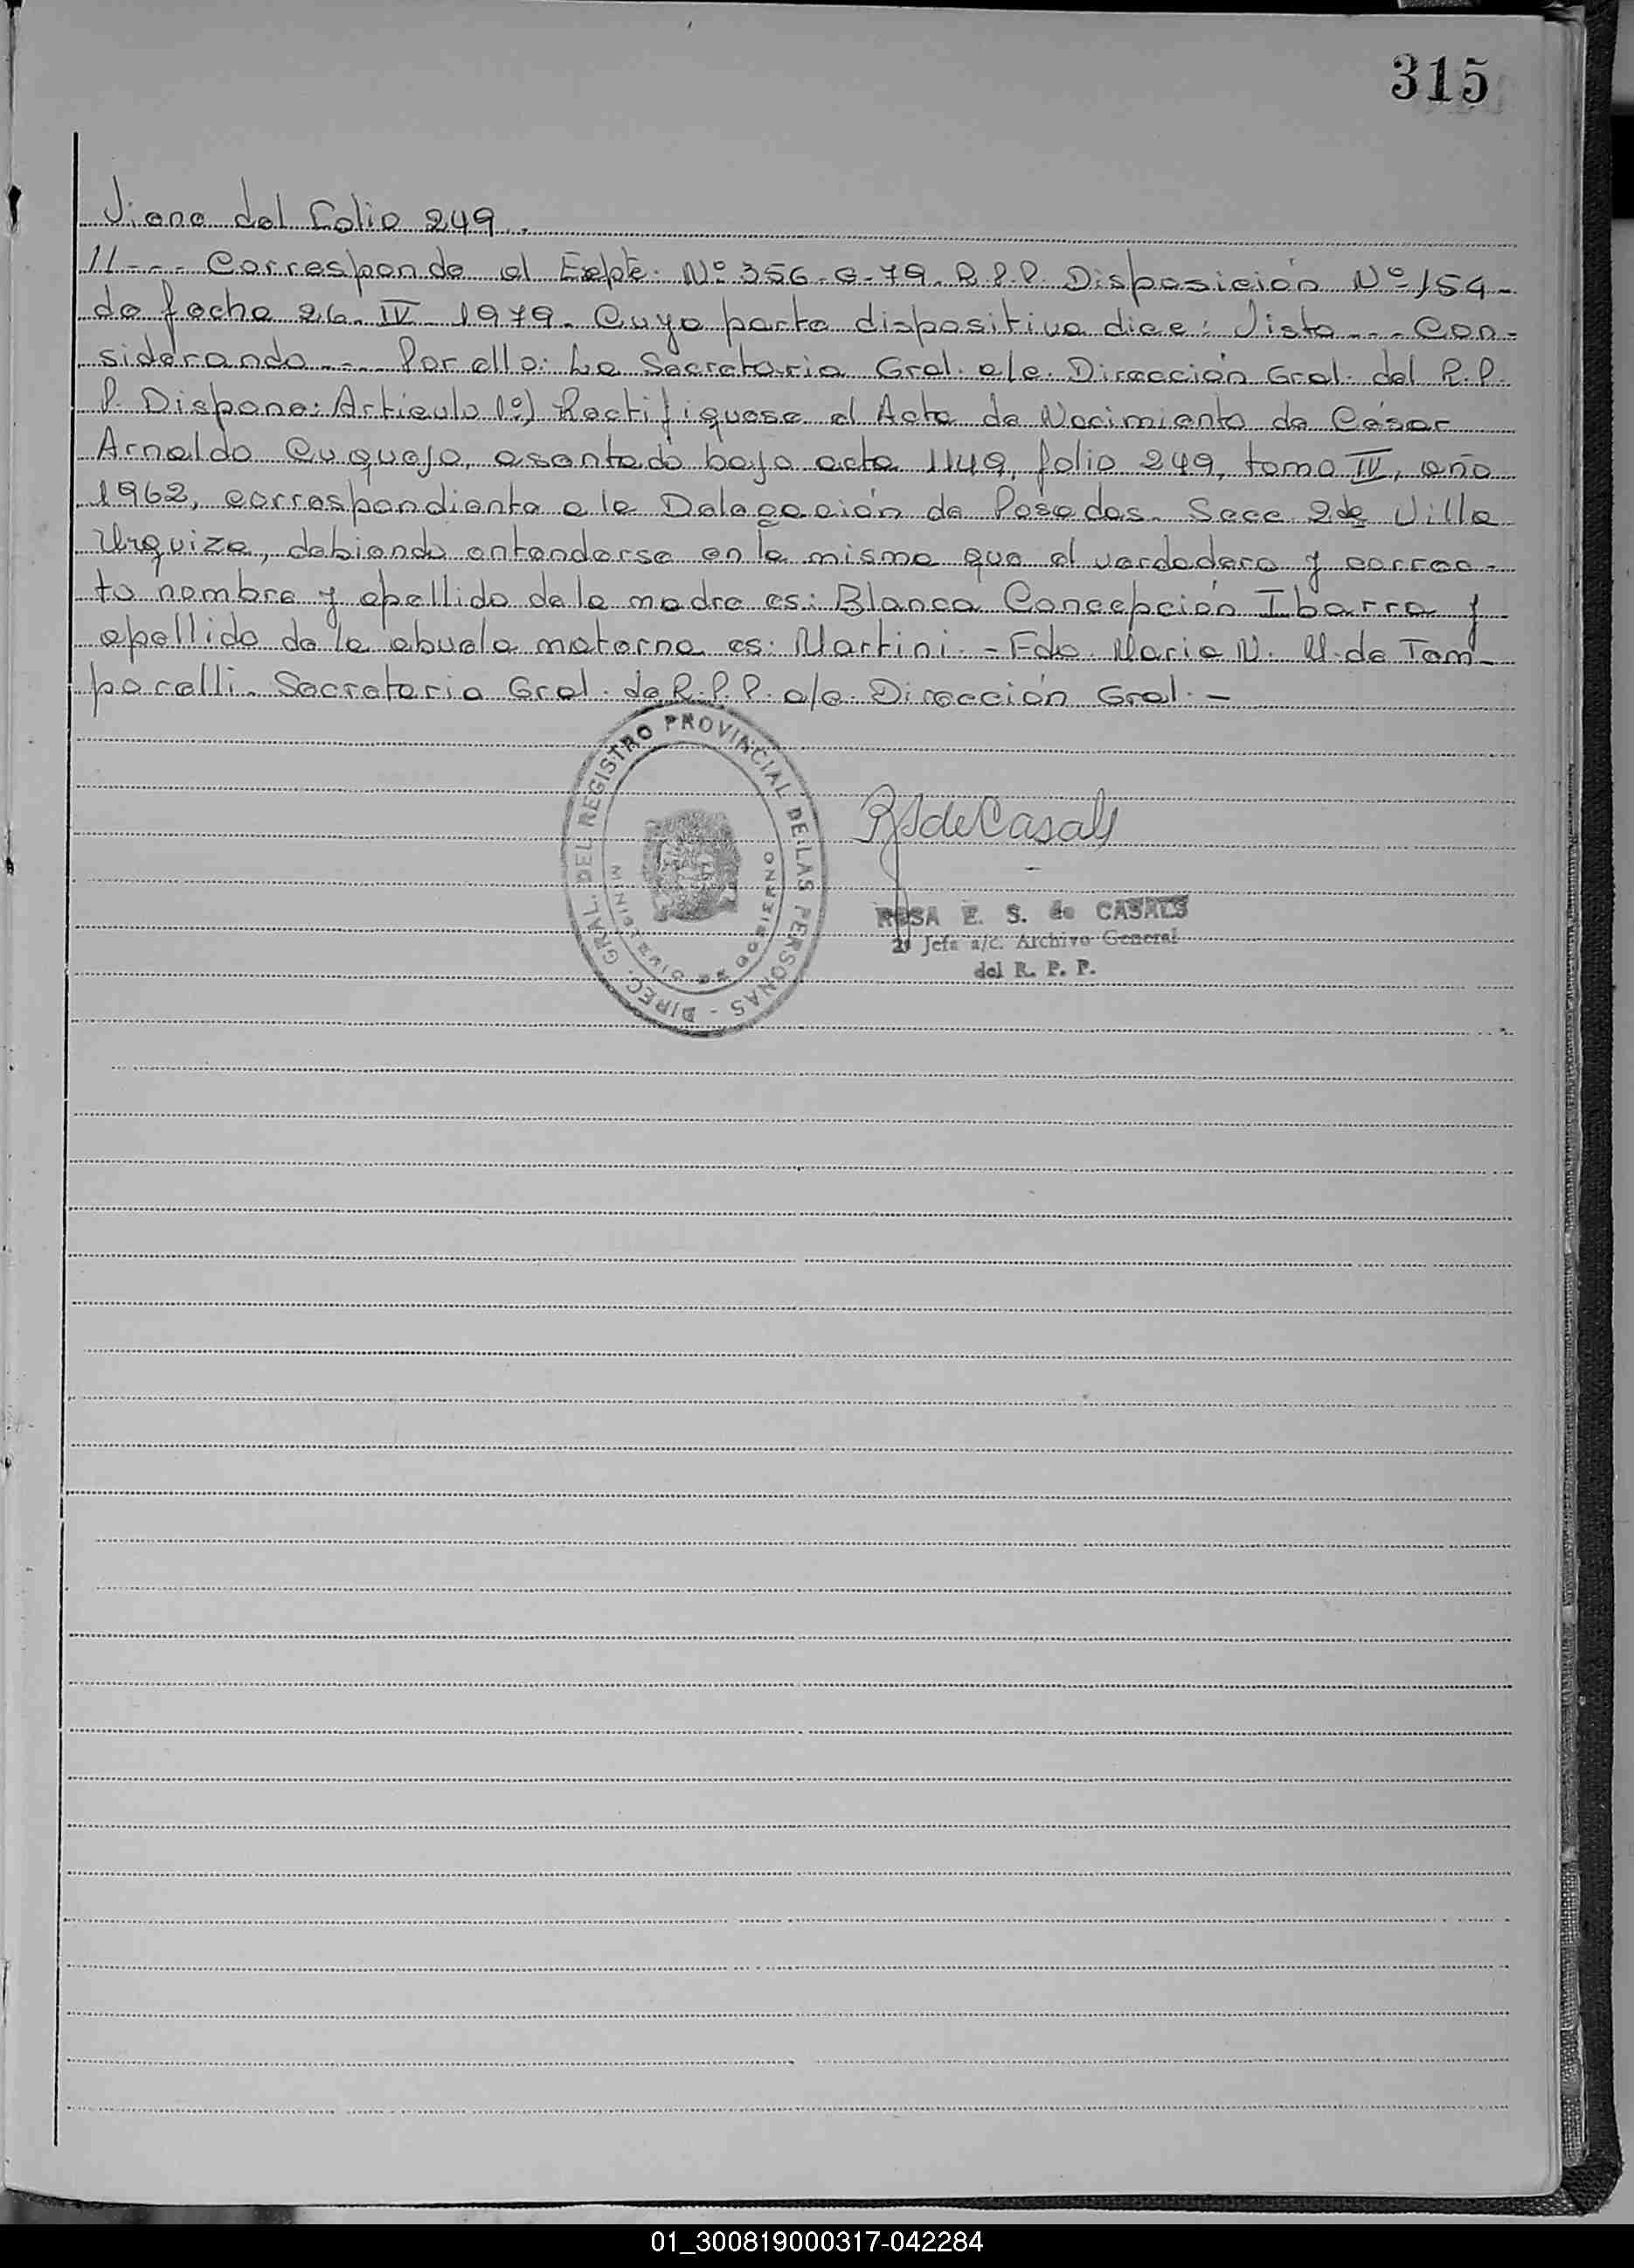 315
Viene del Folio 249..
11--- Corresponde al Expte. Nº 356-G-79. R.P.P. Disposición Nº 154-
de fecha 26-IV-1979. Cuya parte dispositiva dice: Visto --- Con-
siderando ---- Por ello: La Secretaria Gral. a/c. Dirección Gral. del R.P.
P. Dispone: Artículo 1º) Rectifiquese el Acta de Nacimiento de César
Arnaldo Cuquejo, asentado bajo acta 1149, folio 249, tomo IV, año
1962, correspondiente a la Delegación de Posadas. Secc 2da Villa
Urquiza, debiendo entenderse en la misma que el verdadero y correc-
to nombre y apellido de la madre es: Blanca Concepción Ibarra y
apellido de la abuela materna es: Martini. - Fdo. Maria N. M. de Tam-
parelli. Secretaria Gral. de R.P.P. a/c. Dirección Gral. -
DIREC. GRAL. DEL REGISTRO PROVINCIAL DE LAS PERSONAS -
MINISTERIO DE GOBIERNO
RSdeCasals
ROSA E. S. de CASALS
2ª Jefa a/c. Archivo General
del R. P. P.
01_300819000317-042284